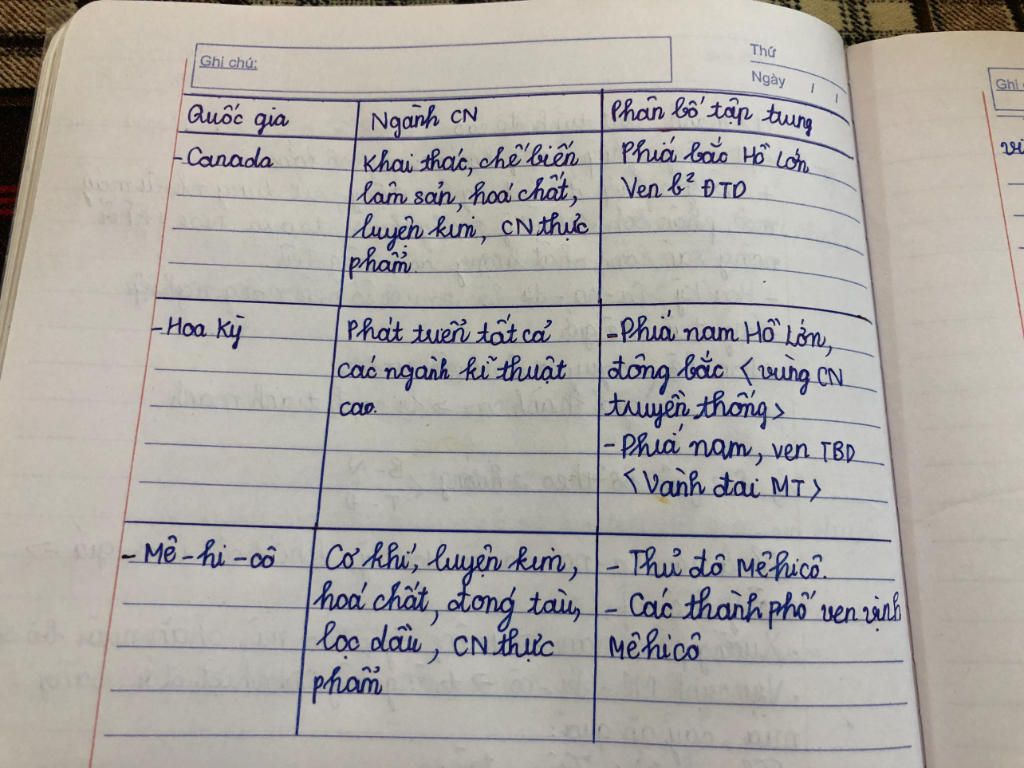 Ghi chú:
Thứ
Ngày
Quốc gia
Ngành CN
Phân bố tập tung
- Canada
Khai thác, chế biến
lâm sản, hoá chất,
luyện kim, CN thực
phẩm.
Phiá bắc Hồ Lớn
Ven b² ĐTD
- Hoa Kỳ
Phát tuển tất cả
các ngành kĩ thuật
cao.
- Phiá nam Hồ Lớn,
đông bắc < vùng CN
truyền thống >
- Phiá nam, ven TBD
< Vành đai MT >
- Mê - hi - cô
Cơ khí, luyện kim,
hoá chất, đóng tàu,
lọc dầu, CN thực
phẩm
- Thủ đô Mêhicô.
- Các thành phố ven vịnh
Mêhicô
Ghi